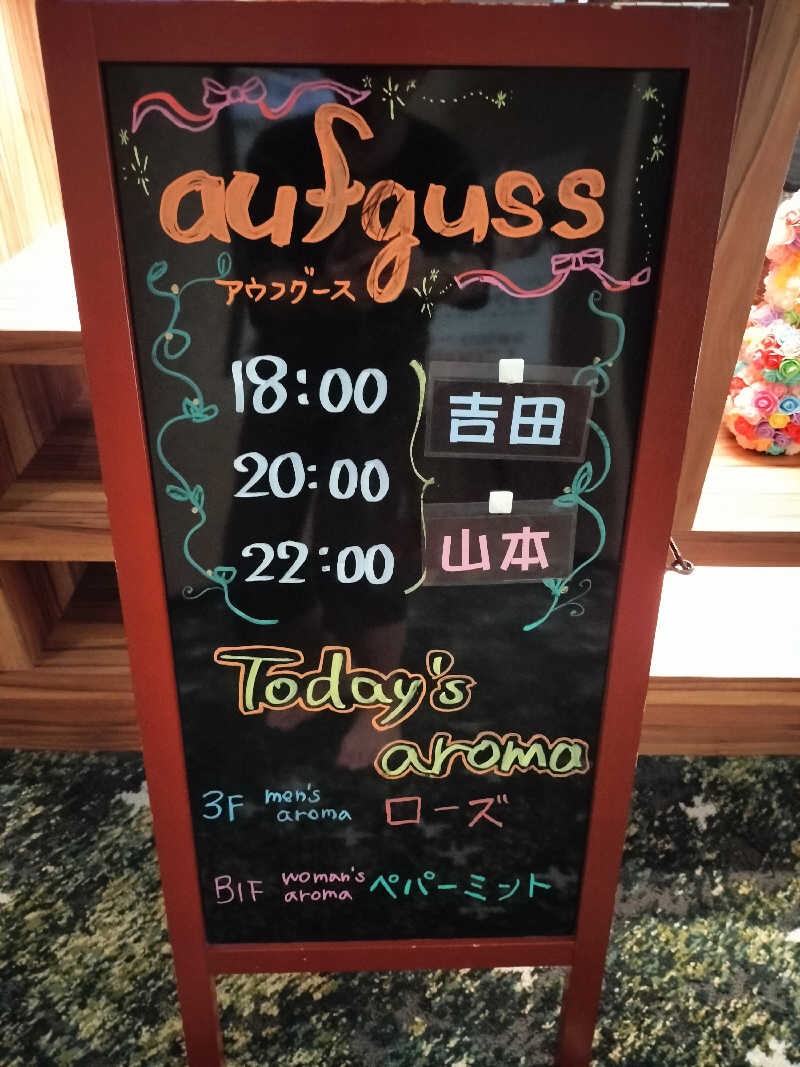 aufguss
アウフグース
18:00
20:00
22:00
吉田
山本
Today's
aroma
3F men's aroma ローズ
B1F woman's aroma ペパーミント